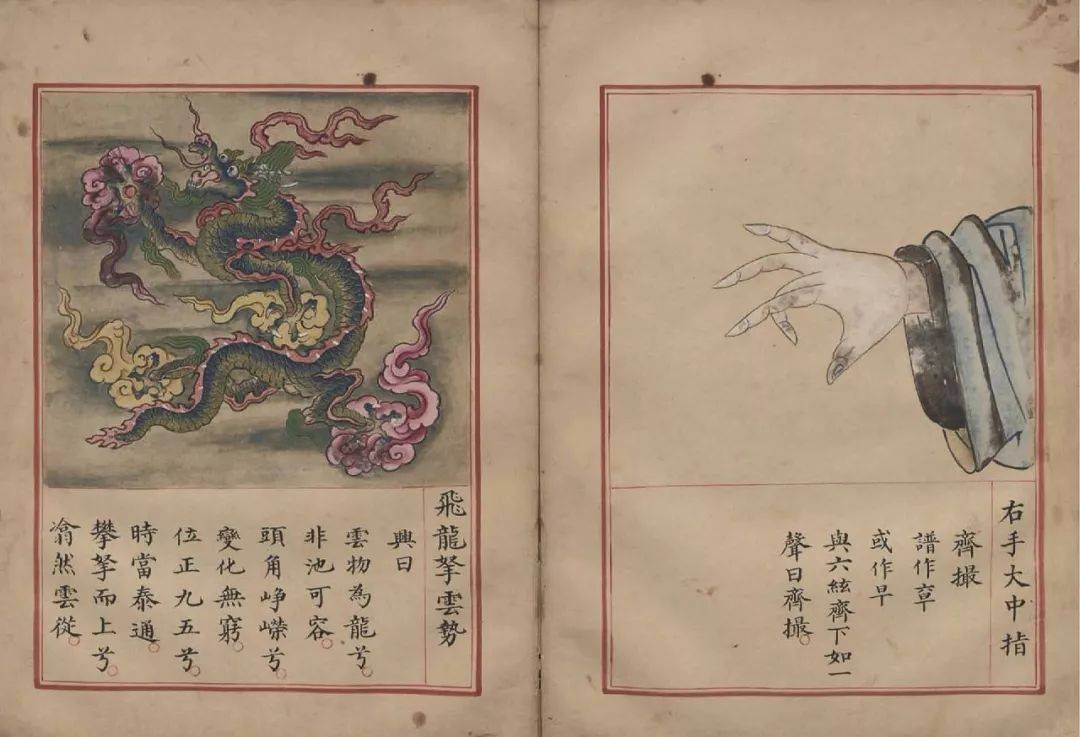 右手大中指
齊撮
譜作
或作早
與六絃齊下如一
聲曰齊撮。
飛龍拏雲勢
興曰
雲物為龍兮。
非池可容。
頭角崢嶸兮。
變化無窮。
位正九五兮。
時當泰通。
攀拏而上兮。
翕然雲從。